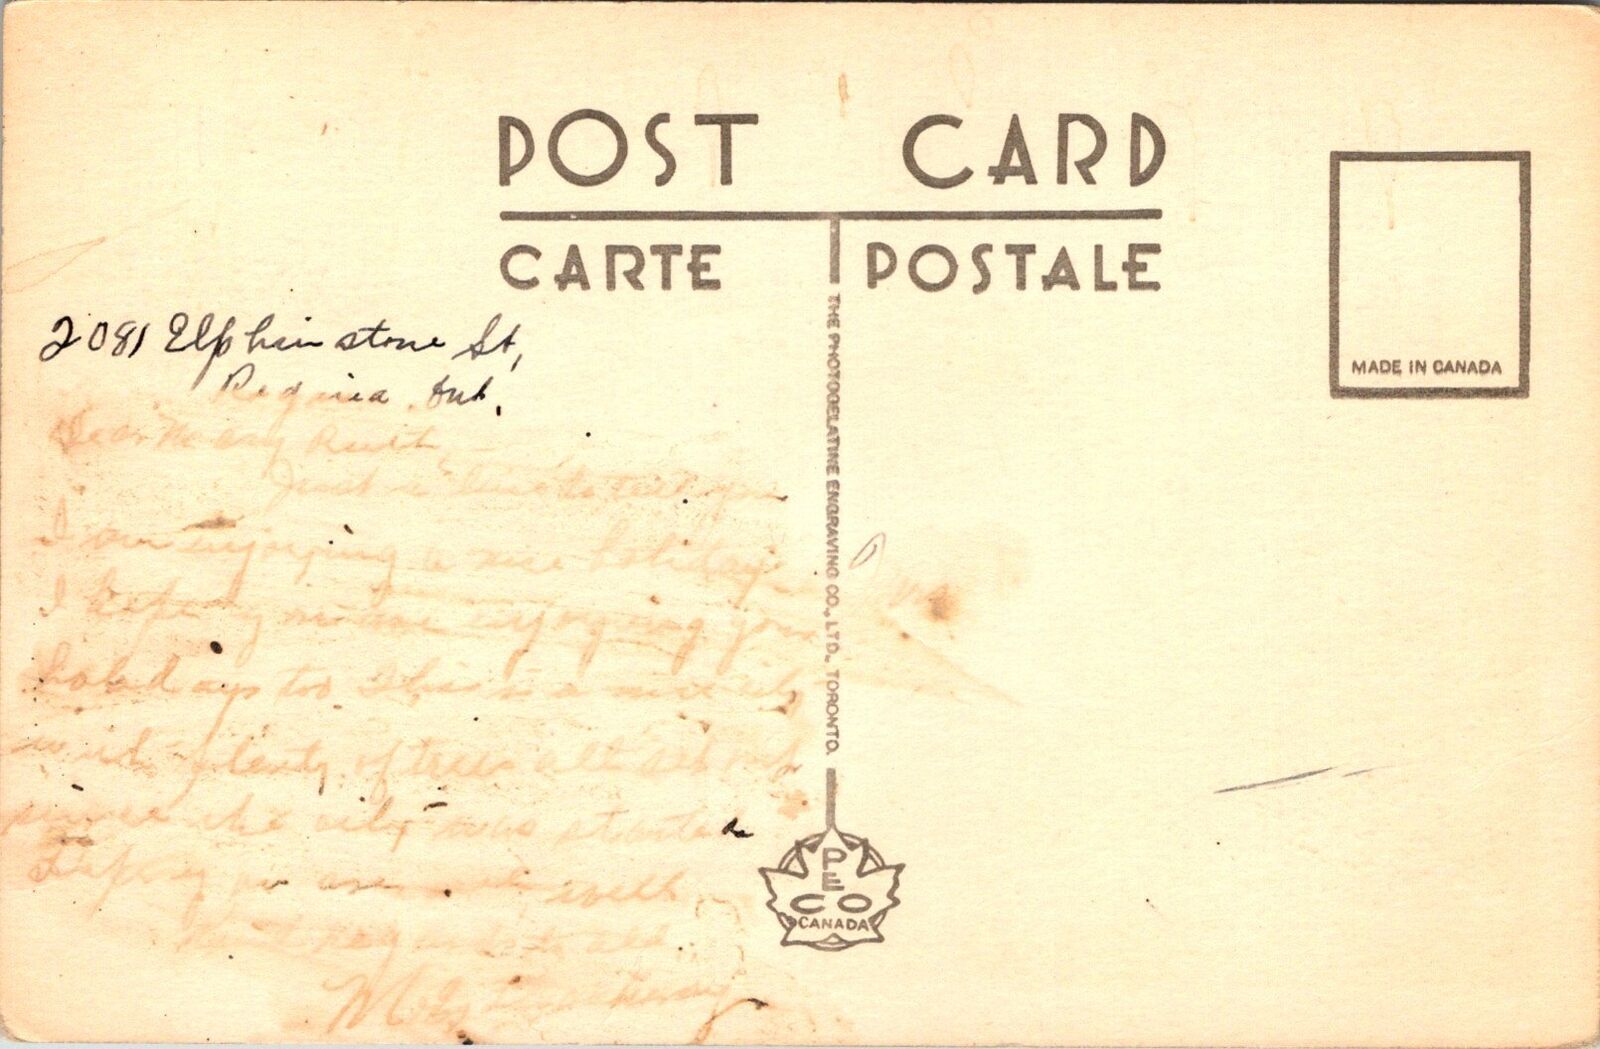 POST CARD
CARTE POSTALE
MADE IN CANADA
THE PHOTOGELATINE ENGRAVING CO., LTD. TORONTO.
PECO
CANADA
2081 Elphinstone St,
Regina
Dear Mary Ruth
Just a line to tell you
I am enjoying a nice holiday
I hope you are enjoying your
holidays too This is a nice city
with plenty of trees all set out
since the city was started
Hoping you are well
Best regards to all